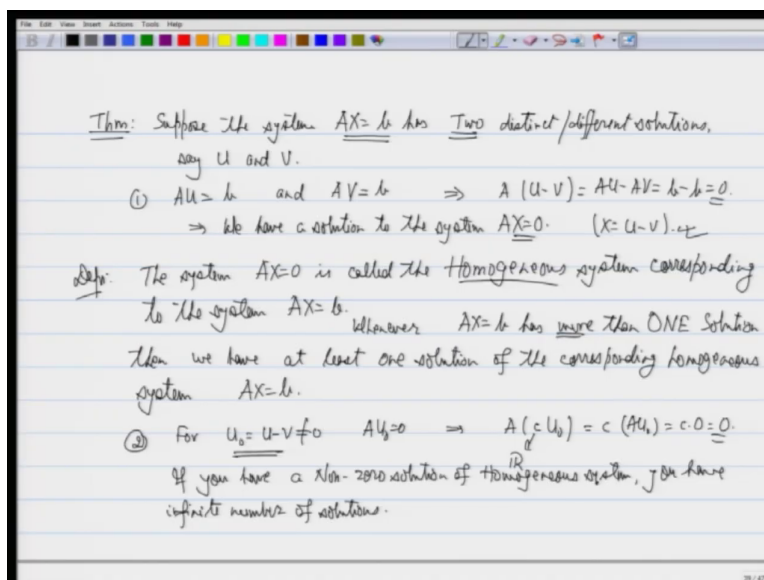 File Edit View Insert Actions Tools Help
Thm: Suppose the system AX=b has Two distinct/different solutions,
say U and V.
① AU=b and AV=b ⇒ A(U-V)=AU-AV=b-b=0.
⇒ We have a solution to the system AX=0. (X=U-V).
Defn: The system AX=0 is called the Homogeneous system corresponding
to the system AX=b.
Whenever AX=b has more than ONE Solution
then we have at least one solution of the corresponding homogeneous
system AX=b.
② For U₀=U-V≠0 AU₀=0 ⇒ A(cU₀)=c(AU₀)=c.0=0.
IR
If you have a Non-zero solution of Homogeneous system, you have
infinite number of solutions.